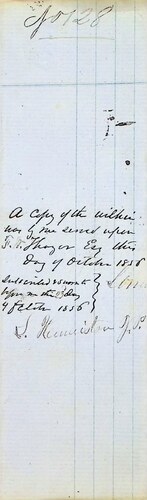 No 128
A Copy of the within
was by me served upon
Thayer Esq this
Day of October 1856
Subscribed & sworn to
before me this day
of October 1856
S. J. P.